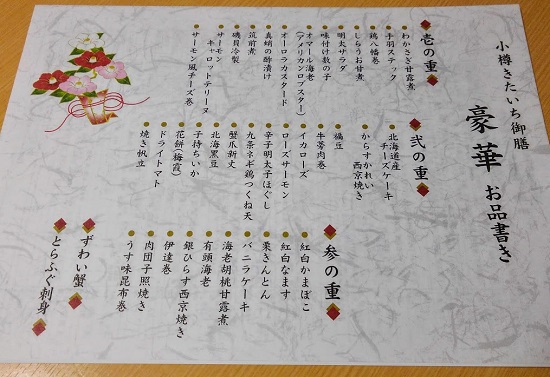 小樽きたいち御膳
豪華 お品書き
壱の重
わかさぎ甘露煮
手羽スティック
鶏八幡巻
しらうお甘煮
明太サラダ
味付け数の子
オマール海老
(アメリカンロブスター)
オーロラカスタード
真蛸の酢漬け
筑前煮
磯貝冷製
サーモン
キャロットテリーヌ
サーモン風チーズ巻
弐の重
北海道産
チーズケーキ
からすかれい
西京焼き
福豆
牛蒡肉巻
イカローズ
ローズサーモン
辛子明太子ほぐし
九条ネギ鶏つくね天
蟹爪新丈
北海黒豆
子持ちいか
花餅(梅霞)
ドライトマト
焼き帆立
参の重
紅白かまぼこ
紅白なます
栗きんとん
バニラケーキ
海老胡桃甘露煮
有頭海老
銀ひらす西京焼き
伊達巻
肉団子照焼き
うす味昆布巻
ずわい蟹
とらふぐ刺身